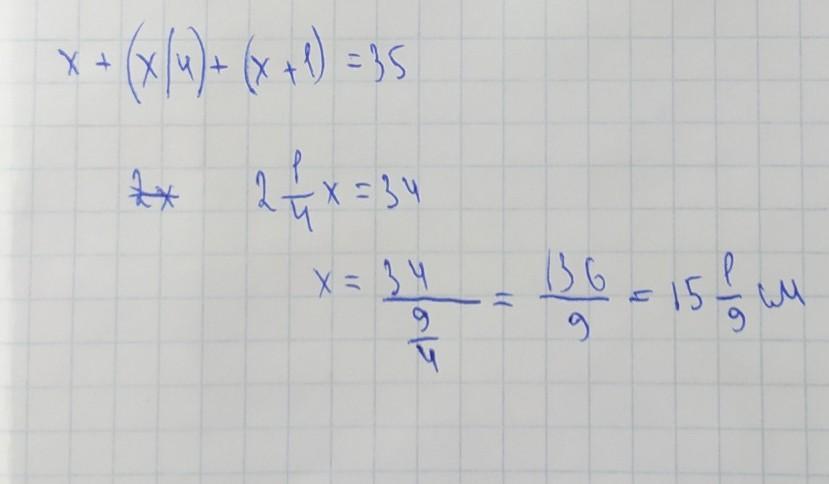 x + (x/4) + (x+1) = 35
2x 2 1/4 x = 34
x = 34/(9/4) = 136/9 = 15 1/9 см